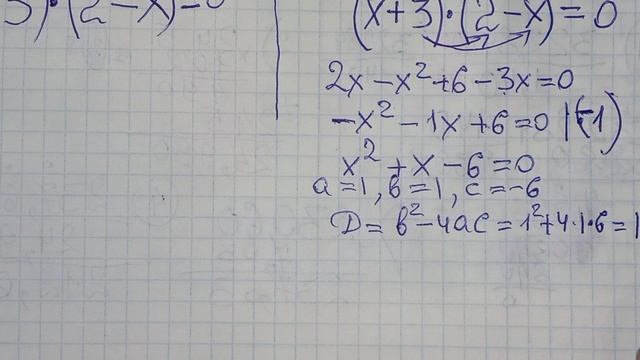 3)·(2-x)=0
(x+3)·(2-x)=0
2x-x²+6-3x=0
-x²-1x+6=0 |(-1)
x²+x-6=0
a=1, b=1, c=-6
D=b²-4ac=1²+4·1·6=1